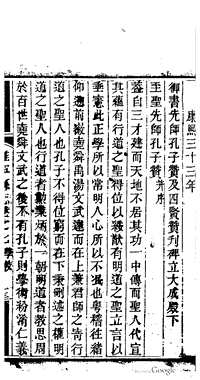 康熙三十三年
御書先師孔子贊及四賢贊刋碑立大成殿下
至聖先師孔子贊并序
蓋自三才建而天地不居其功一中傳而聖人代宣
其蘊有行道之聖得位以綏猷有明道之聖立言以
垂憲此正學所以常明人心所以不泯也粤稽往緒
仰溯前徽堯舜禹湯文武達而在上兼君師之寄行
道之聖人也孔子不得位窮而在下秉删述之權明
道之聖人也行道者勳業炳於一朝明道者教思周
於百世堯舜文武之後不有孔子則學術紛淆仁義